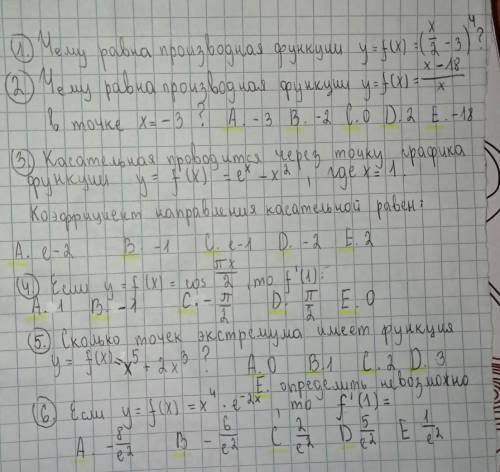 ① Чему равна производная функции y=f(x)=(x/2 - 3)⁴?
② Чему равна производная функции y=f(x)= (x-18)/x
в точке x=-3 ? A. -3 B. -2 C. 0 D. 2 E. -18
③ Касательная проводится через точку графика
функции y = f'(x) = eˣ - x², где x=1.
Коэффициент направления касательной равен:
A. e-2 B. -1 C. e-1 D. -2 E. 2
④ Если y=f(x)= cos πx/2, то f'(1):
A. 1 B. -1 C. -π/2 D. π/2 E. 0
⑤. Сколько точек экстремума имеет функция
y = f(x)=x⁵+2x³ ? A. 0 B. 1 C. 2 D. 3
E. определить невозможно
⑥. Если y=f(x)=x⁴·e⁻²ˣ, то f'(1)=
A. -8/e² B -6/e² C 2/e² D 5/e² E 1/e²